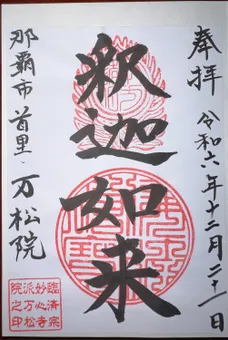 奉拝 令和六年十二月二十一日
釈迦如来
那覇市首里・万松院
臨済宗
妙心寺
派万松
院之印